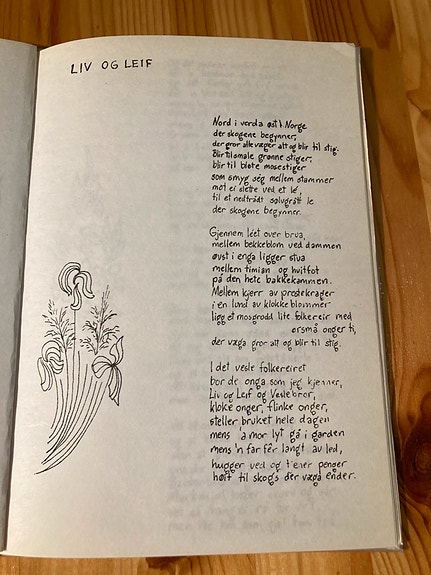 LIV OG LEIF
Nord i verda øst i Norge
der skogene begynner,
der gror alle væger att og blir til stig.
Blir til smale grønne stiger,
blir til bløte mosestiger
som smyg seg mellem stammer
mot ei slette ved et le,
til et nedtrådt sølvgrått le
der skogene begynner.
Gjennem léet over brua,
mellem bekkeblom ved dammen
øvst i enga ligger stua
mellem timian og kvitfot
på den hete bakkekammen.
Mellem kjerr av prestekrager
i en lund av klokkeblommer
ligg et mosgrodd lite folkereir med
ørsmå onger ti,
der væga gror att og blir til stig.
I det vesle folkereiret
bor de onga som jeg kjenner,
Liv og Leif og Veslebror,
kloke onger, flinke onger,
steller bruket hele dagen
mens 'a mor lyt gå i garden
mens 'n far fér langt av led,
hugger ved og tener penger
høit til skogs der væga ender.